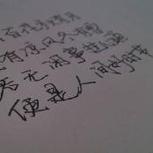 有凉风冬有雪
若无闲事挂心头
便是人间好时节